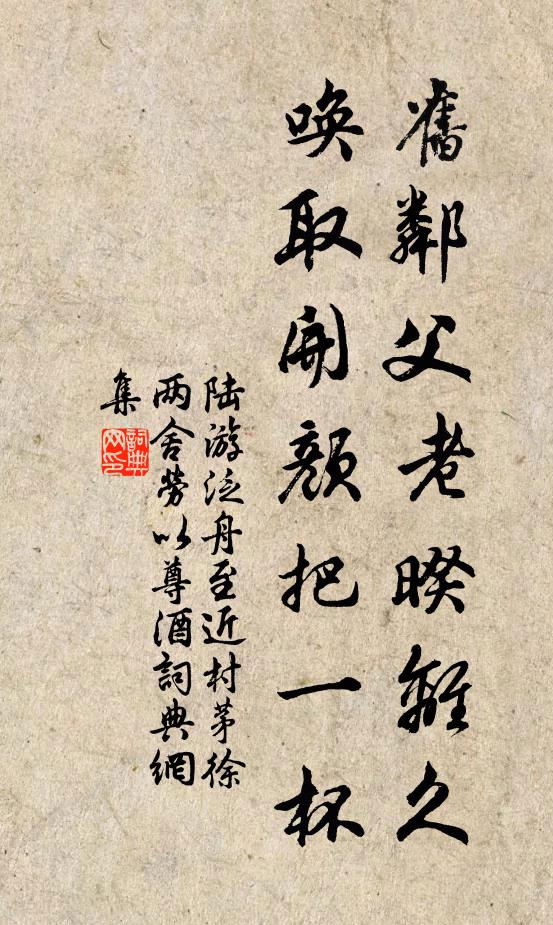 舊鄰父老暌離久
喚取開顏把一杯
陆游泛舟至近村茅徐
两舍劳以尊酒詞典網
集
詞典
网印